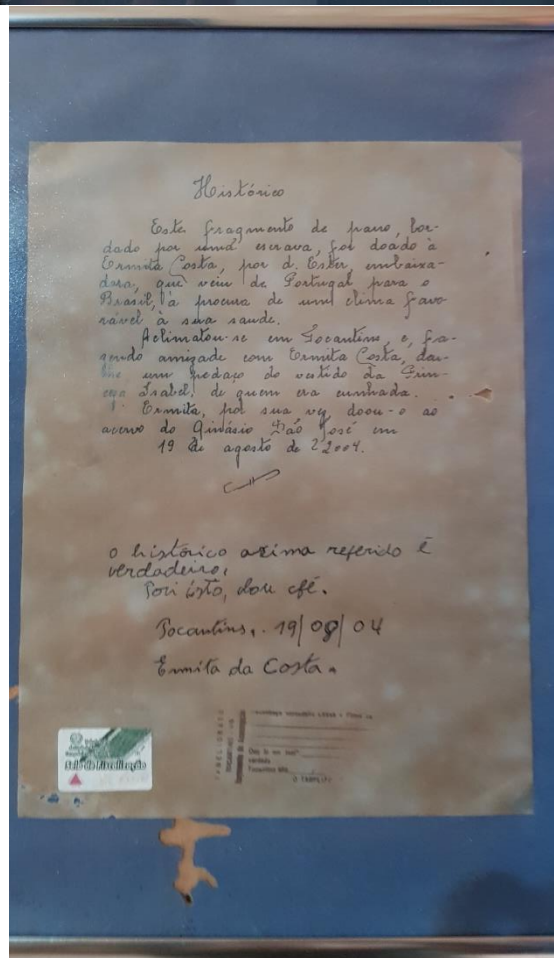 Histórico
Este fragmento de pano, bor-
dado por uma escrava, foi doado à
Ermita Costa, por d. Ester, embaixa-
dora, que veio de Portugal para o
Brasil, à procura de um clima favo-
rável à sua saude.
Aclimatou-se em Tocantins, e, fa-
zendo amizade com Ermita Costa, dou-
lhe um pedaço do vestido da Prin-
cesa Isabel, de quem era cunhada.
Ermita, por sua vez, doou-o ao
acervo do Ginásio São José em
19 de agosto de 2004.
o histórico acima referido é
verdadeiro.
Por isto, dou fé.
Tocantins, 19/08/04
Ermita da Costa.
Selo de Fiscalização
TOCANTINS - MG
Dou fé em test°
verdade
Tocantins MG